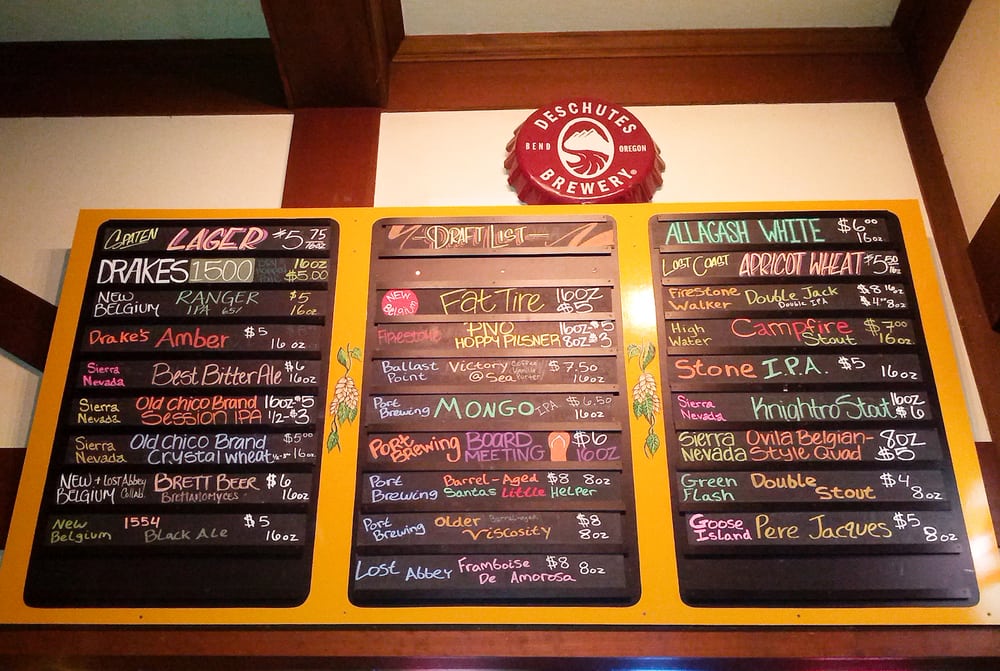 DESCHUTES
BEND OREGON
BREWERY®
SPATEN LAGER $5.75 16oz
DRAKES 1500 16oz $5.00
NEW BELGIUM RANGER IPA $5 16oz
Drake's Amber $5 16oz
Sierra Nevada Best Bitter Ale $6 16oz
Sierra Nevada Old Chico Brand Session IPA 16oz $5 1/2-$3
Sierra Nevada Old Chico Brand Crystal Wheat $5.00 16oz
NEW BELGIUM + Lost Abbey Collab. BRETT BEER Brettanomyces $6 16oz
New Belgium 1554 Black Ale $5 16oz
DRAFT LIST
NEW BELGIAN Fat Tire 16OZ $5
Firestone PIVO HOPPY PILSNER 16oz-$5 8oz-$3
Ballast Point Victory @ Sea Coffee Vanilla Porter $7.50 16oz
Port Brewing MONGO IPA $6.50 16oz
Port Brewing BOARD MEETING $6 16oz
Port Brewing Barrel-Aged Santas Little Helper $8 8oz
Port Brewing Older Viscosity $8 8oz
Lost Abbey Framboise De Amorosa $8 8oz
ALLAGASH WHITE $6.00 16oz
Lost Coast APRICOT WHEAT $5.50 16oz
Firestone Walker Double Jack Double IPA $8 16oz $4 8oz
High Water Campfire Stout $7.00 16oz
Stone I.P.A. $5 16oz
Sierra Nevada Knightro Stout 16oz $6
Sierra Nevada Ovila Belgian-Style Quad 8oz $5
Green Flash Double Stout $4 8oz
Goose Island Pere Jacques $5 8oz